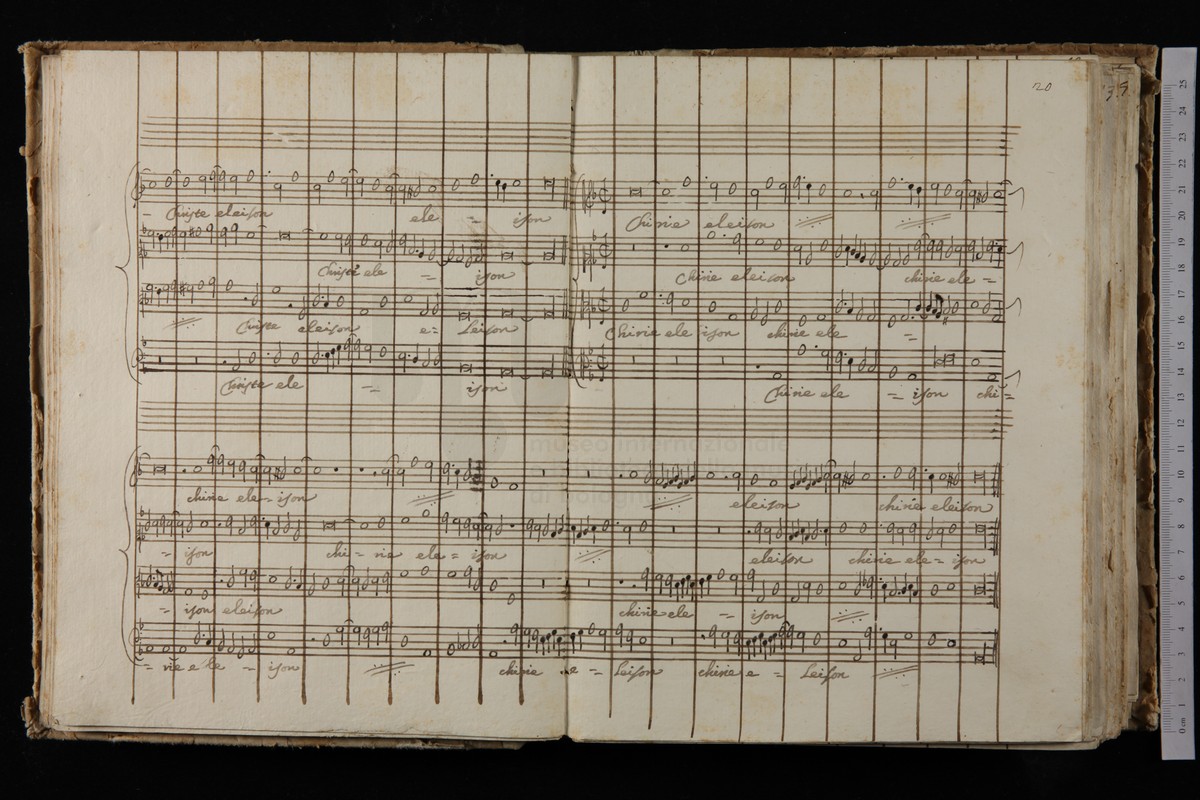 20
35
Christe eleison ele = ison
Chirie eleison
Christe ele = ison
Chirie eleison chirie ele =
Christe eleison e = leison
Chirie ele ison chirie ele =
Christe ele = ison
Chirie ele = ison chi =
museo internazionale
di bologna
chirie ele = ison
eleison chirie eleison
= ison chi = rie ele = ison
eleison chirie ele = ison
= ison eleison
chirie ele = ison
= rie e le = ison
chirie e = leison chirie e = leison
0 cm 1 2 3 4 5 6 7 8 9 10 11 12 13 14 15 16 17 18 19 20 21 22 23 24 25